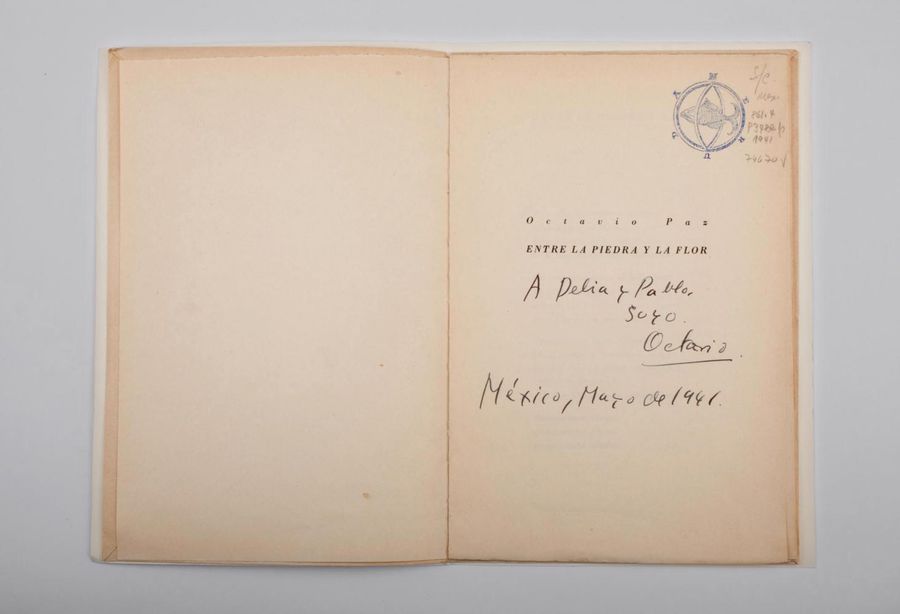 S/C
Mex.
861.4
1941
Octavio Paz
ENTRE LA PIEDRA Y LA FLOR
A Delia y Pablo,
Suyo.
Octavio.
México, Mayo de 1941.